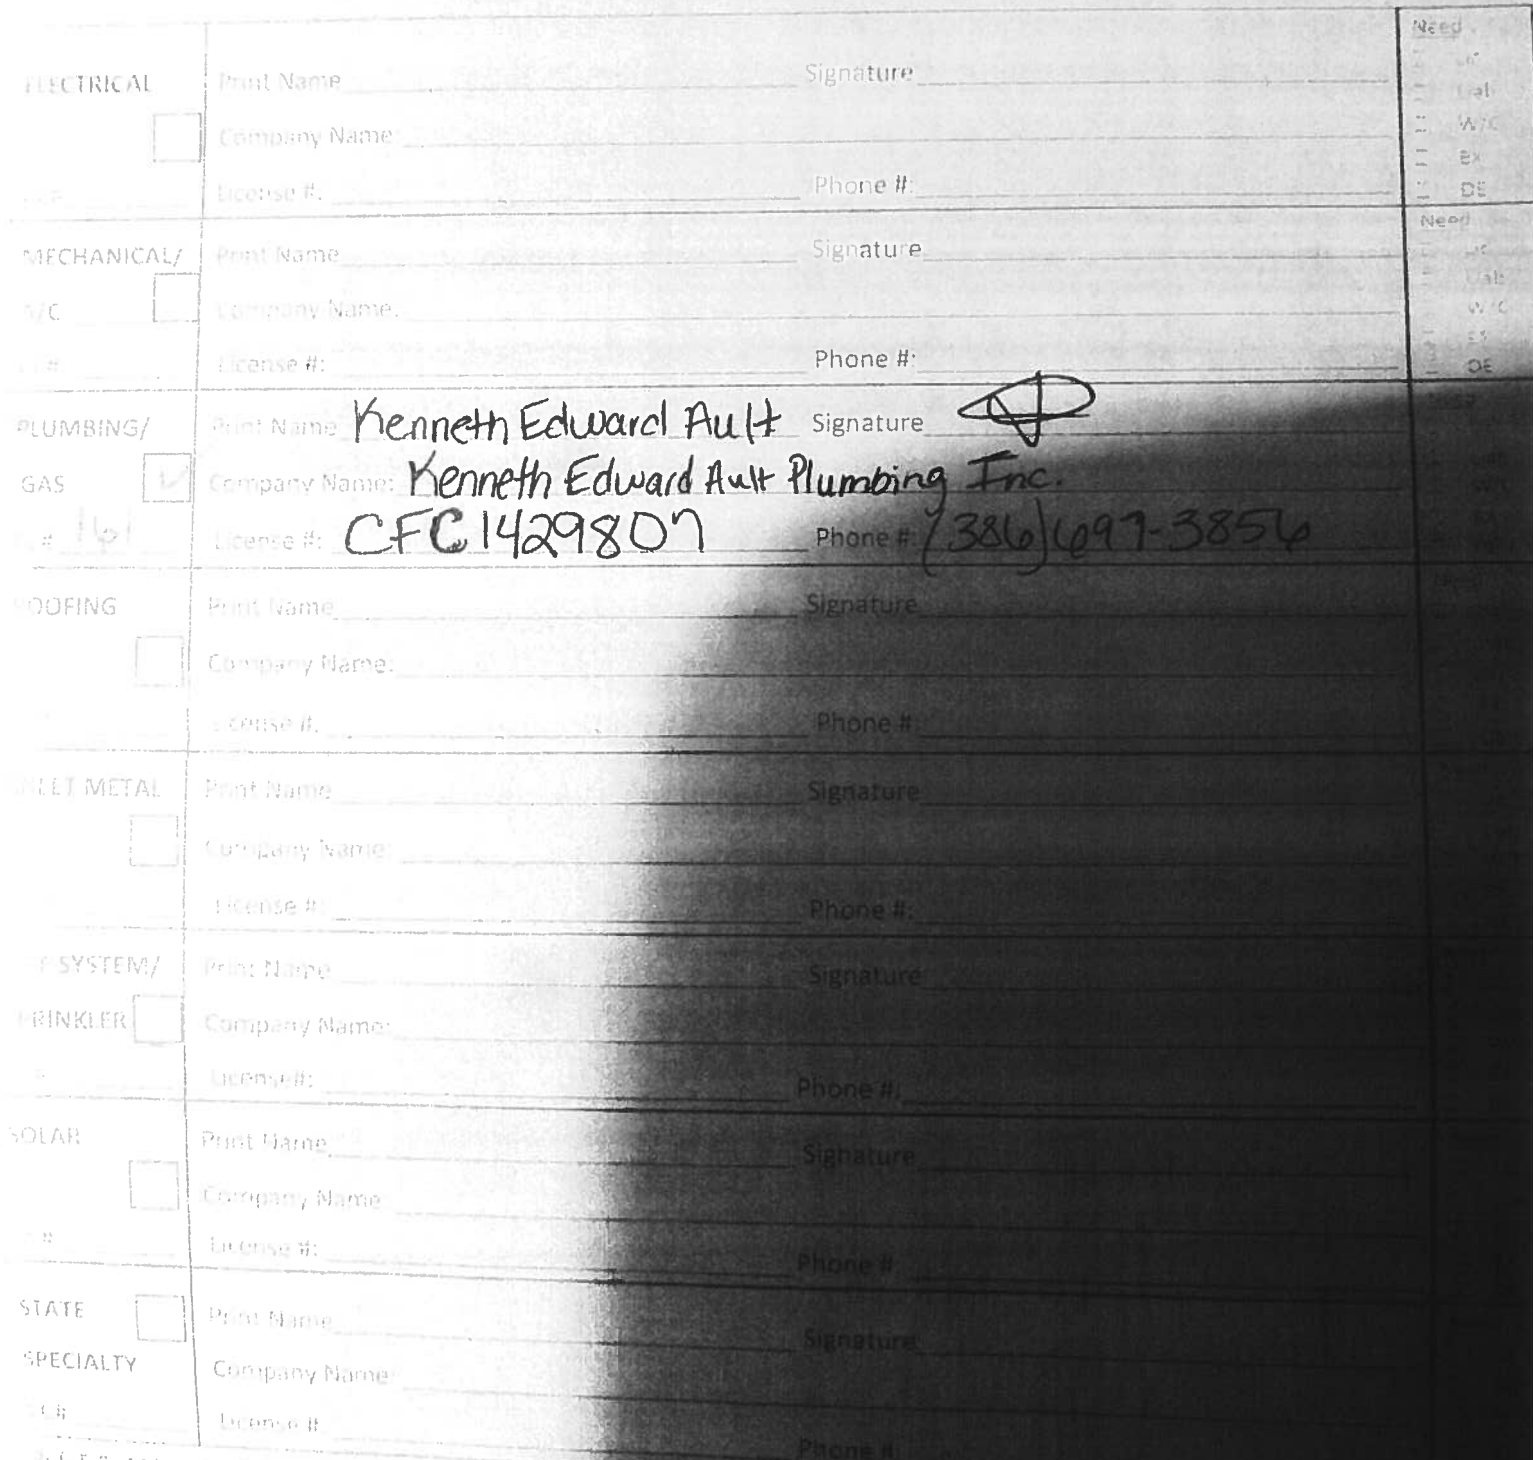 Need
ELECTRICAL Print Name Signature
W/C
Company Name:
Ex
License #: Phone #: DE
Need
MECHANICAL/ Print Name Signature
A/C Company Name: W/C
License #: Phone #: DE
PLUMBING/ Print Name Kenneth Edward Ault Signature
GAS Company Name: Kenneth Edward Ault Plumbing Inc.
# 161 License #: CFC1429807 Phone #: (386)697-3856
ROOFING Print Name Signature
Company Name:
License #: Phone #:
SHEET METAL Print Name Signature
Company Name:
License #: Phone #:
SYSTEM/ Print Name Signature
SPRINKLER Company Name:
License#: Phone #:
SOLAR Print Name Signature
Company Name:
# License #: Phone #
STATE Print Name Signature
SPECIALTY Company Name
License # Phone #: